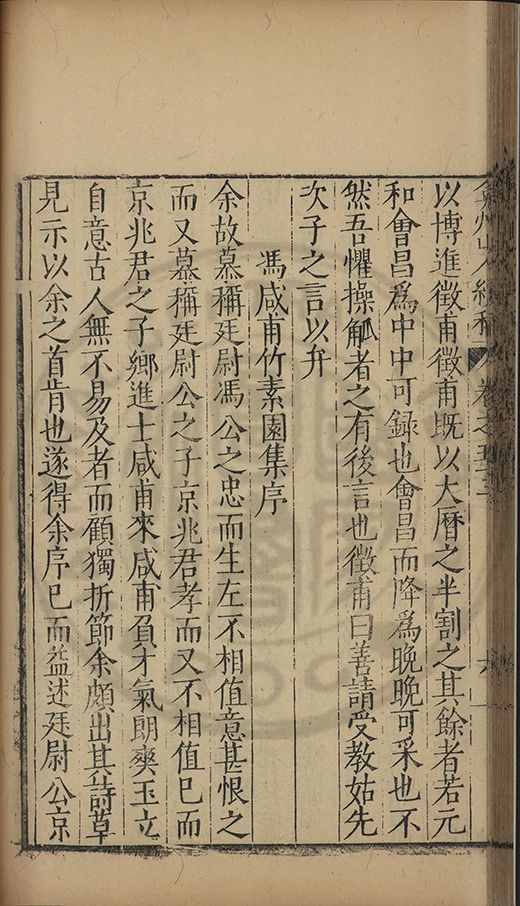 弇州山人續稿 卷之五十三 六
以博進徵甫徵甫既以大曆之半割之其餘者若元
和會昌爲中中可録也會昌而降爲晚晚可采也不
然吾懼操觚者之有後言也徵甫曰善請受教姑先
次子之言以弁
馮咸甫竹素園集序
余故慕稱廷尉馮公之忠而生左不相值意甚恨之
而又慕稱廷尉公之子京兆君孝而又不相值已而
京兆君之子鄉進士咸甫來咸甫負才氣朗爽玉立
自意古人無不易及者而顧獨折節余頗出其詩草
見示以余之首肯也遂得余序已而益述廷尉公京